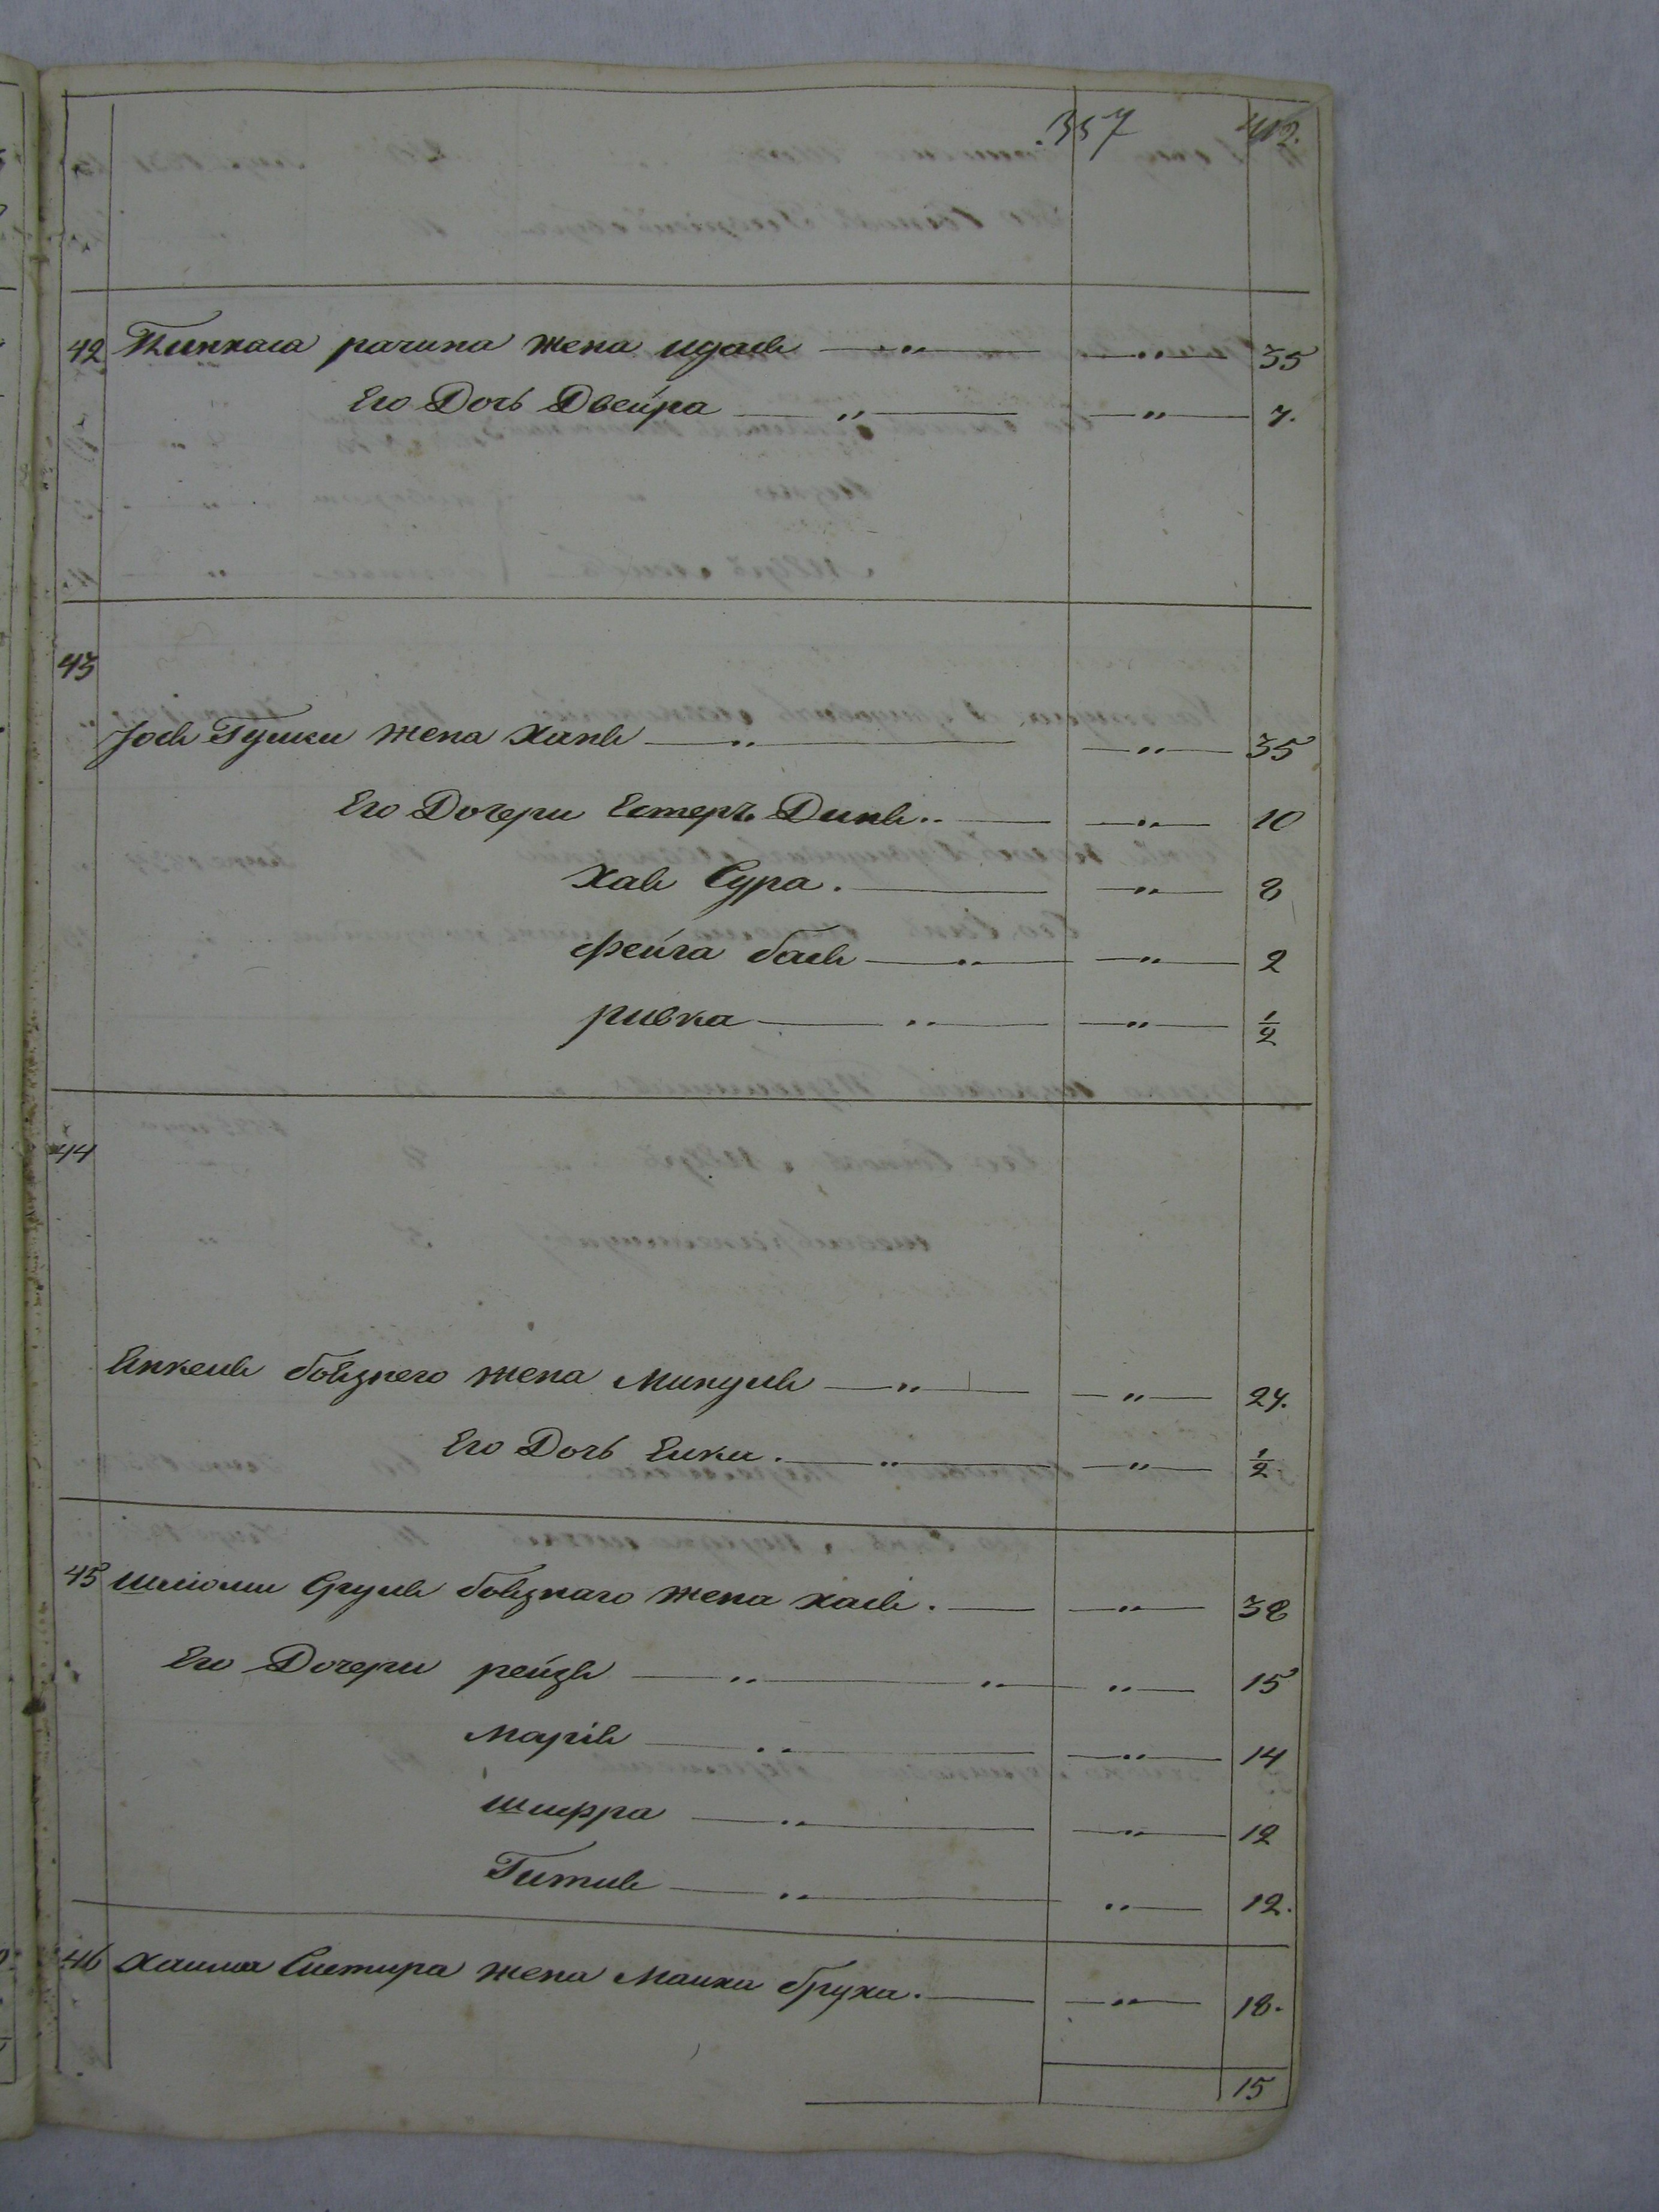 357 412.
42 Пинхаса рачина жена идась — „ — — „ — 35
Его Дочь Двейра — „ — — „ — 7.
43
Іось Гушки жена Хань — „ — — „ — 35
Его Дочери Естеръ Динь .. — — „ — 10
Хаъ Сура . — — „ — 8
Фейга бась — „ — — „ — 2
ривка — „ — — „ — 1/2
44
Янкель жена Миндль — „ — — „ — 24.
Его Дочь Еики . — „ — — „ — 1/2
45 шліоми Сруль жена хась . — — „ — 38
Его Дочери рейзъ — „ — „ — „ — 15
Маріъ — „ — — „ — 14
шифра — „ — — „ — 12
Гитль — „ — „ — 12.
46 Хаима Ситира жена Малка бруха . — — „ — 18.
15